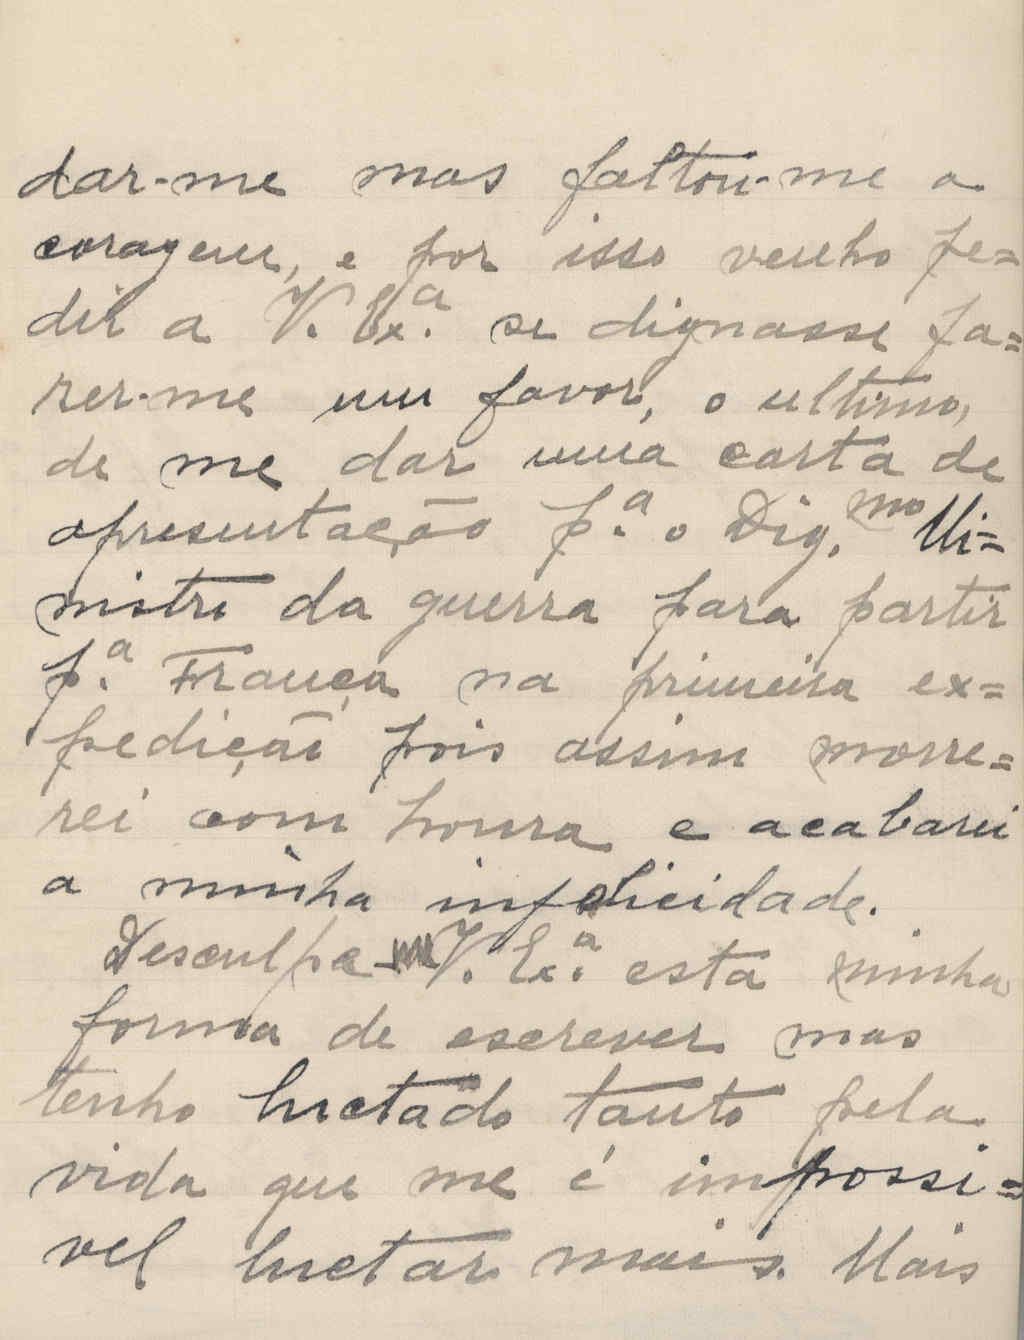 dar-me mas faltou-me a
coragem, e por isso venho pe=
dir a V. Ex.ª se dignasse fa=
zer-me um favor, o ultimo,
de me dar uma carta de
apresentação p.ª o Dig.mo Mi=
nistro da guerra para partir
p.ª França na primeira ex=
pedição pois assim morre=
rei com honra e acabarei
a minha infelicidade.
Desculpe V. Ex.ª esta minha
forma de escrever mas
tenho luctado tanto pela
vida que me é impossi=
vel luctar mais. Mais